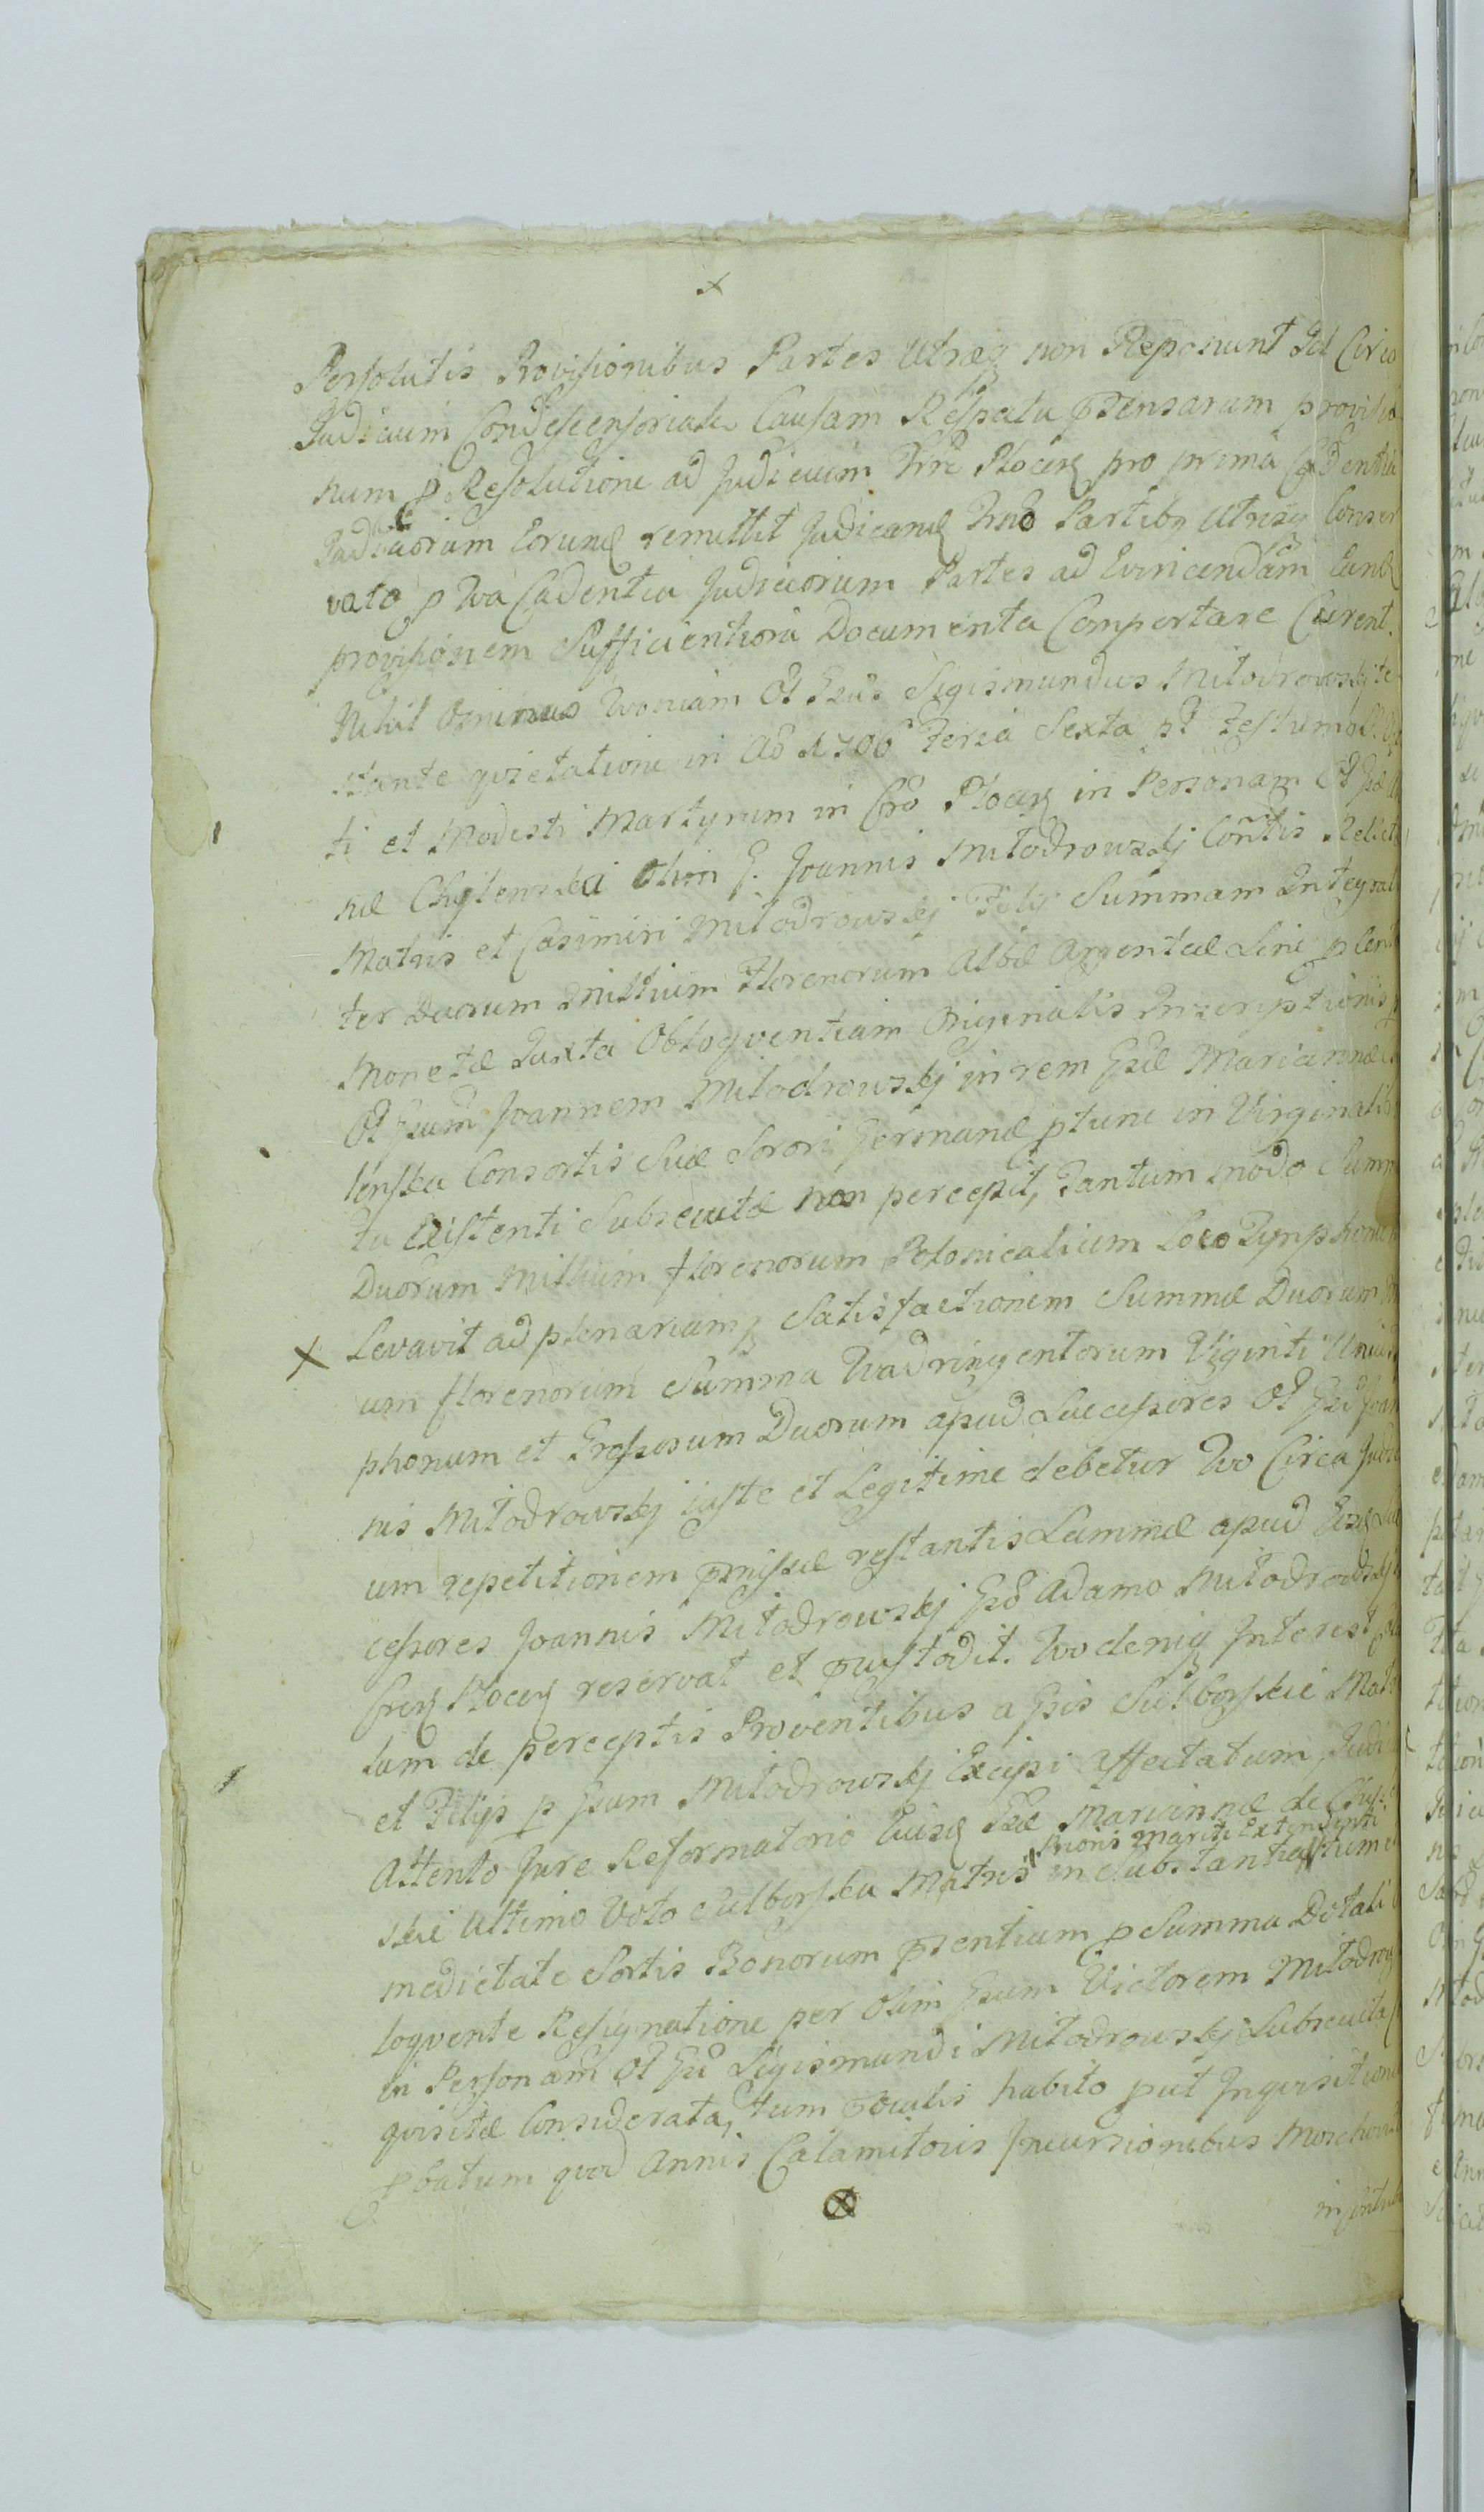 Persolutis Provisionibus Partes Utræq non Reponunt Id Circo
Judicium Condescensoriale Causam Respectu ptensarum provisio
num p Resolutione ad Judicium Trre Plocen pro prima Cadentia
Judiciorum Eorund remittit Judicand Tno Partibq Utrisq Conser
vato p Qva Cadentia Judiciorum Partes ad Evincendam Eand
provisionem Sufficientiora Documenta Comportare Curent.
Nihil Ominus Qvoniam Ol Gsus Sigismundus Miłodrowskj te
stante qvietatione in Ao 1706 Feria Sexta pt Festum
ti et Modesti Martyrum in Cro Plocen in Personam Ol Gsæ
næ Chylenska Olim G. Joannis Miłodrowskj Contis Relicta
Matris et Casimiri Miłodrowskj Filij Summam Integral
ter Duorum Millium Florenorum Albæ Argenteæ Sine
Monetæ Juxta Obloqventiam Originalis Inscriptionis p
Ol Gsum Joannem Miłodrowskj in rem Gsæ Mariannæ
lenska Consortis Suæ Sorori Germanæ ptunc in Virginali
tu Existenti Subsecutæ non percepit, Tantum modo Summ
Duorum Millium florenorum Polonicalium Loco Tynphonum
x Levavit ad plenariamq Satisfactionem Summæ Duorum
um florenorum Summa Qvadringentorum Viginti Unius
phonum et Grossorum Duorum apud Successores Ol Gsi Joan
nis Miłodrowskj iuste et Legitime debetur Qvo Circa Judic
um repetitionem pmissæ restantis Summæ apud Eosd Suc
cessores Joannis Miłodrowskj Gso Adamo Miłodrowskj
Plocen reservat et pcustodit. Qvo deniq Interest
lam de perceptis Proventibus a Gsis Sulborskie Matr
et Filijs p Gsum Miłodrowskj Excipi Affectatum, Judi
Attento Jure Reformatorio Eiusd Gsæ Mariannæ de Chyl
Prioris Mariti Extendenti
skie Ultimo Voto Sulborska Matris in Substantia tum
medietate Sortis Bonorum psentium p Summa Dotali
loqvente Resignatione per Olim Gsum Victorem Miłodrow
in Personam Ol Gsi Sigismundi Miłodrowskj Subsecuta
qvisitæ Considerata, tum poculis habito put Inqvisitione
pbatum qvod Annis Calamitosis Incursionibus Moschovit